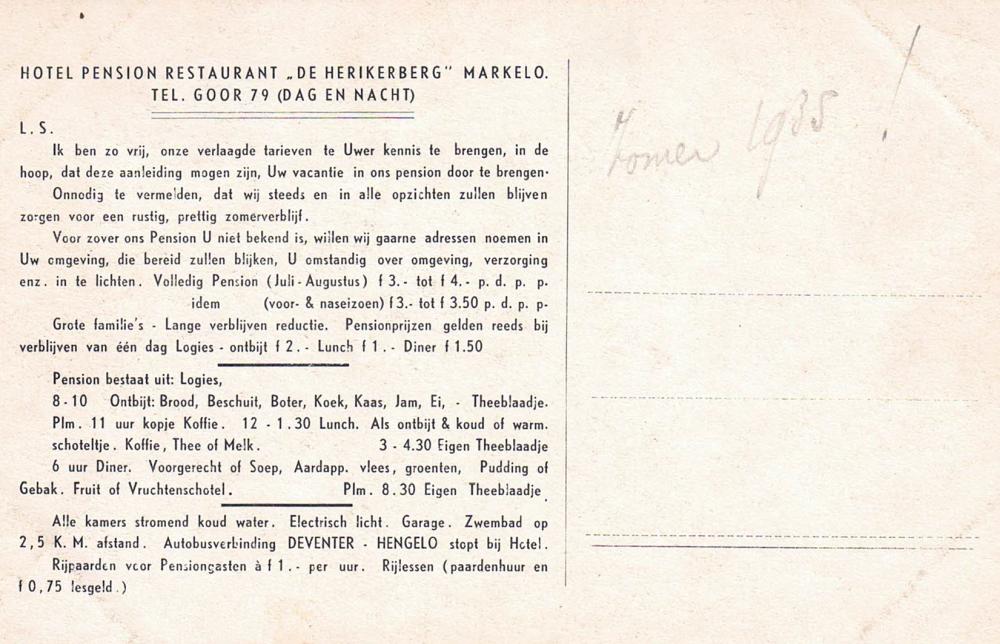 HOTEL PENSION RESTAURANT „DE HERIKERBERG" MARKELO.
TEL. GOOR 79 (DAG EN NACHT)
L. S.
Ik ben zo vrij, onze verlaagde tarieven te Uwer kennis te brengen, in de
hoop, dat deze aanleiding mogen zijn, Uw vacantie in ons pension door te brengen.
Onnodig te vermelden, dat wij steeds en in alle opzichten zullen blijven
zorgen voor een rustig, prettig zomerverblijf.
Voor zover ons Pension U niet bekend is, willen wij gaarne adressen noemen in
Uw omgeving, die bereid zullen blijken, U omstandig over omgeving, verzorging
enz. in te lichten. Volledig Pension (Juli-Augustus) f 3.- tot f 4.- p. d. p. p.
idem (voor- & naseizoen) f 3.- tot f 3.50 p. d. p. p-
Grote familie's - Lange verblijven reductie. Pensionprijzen gelden reeds bij
verblijven van één dag Logies - ontbijt f 2.- Lunch f 1.- Diner f 1.50
Pension bestaat uit: Logies,
8-10 Ontbijt: Brood, Beschuit, Boter, Koek, Kaas, Jam, Ei, - Theeblaadje.
Plm. 11 uur kopje Koffie. 12 - 1.30 Lunch. Als ontbijt & koud of warm.
schoteltje. Koffie, Thee of Melk. 3 - 4.30 Eigen Theeblaadje
6 uur Diner. Voorgerecht of Soep, Aardapp. vlees, groenten, Pudding of
Gebak. Fruit of Vruchtenschotel. Plm. 8.30 Eigen Theeblaadje.
Alle kamers stromend koud water. Electrisch licht. Garage. Zwembad op
2,5 K. M. afstand. Autobusverbinding DEVENTER - HENGELO stopt bij Hotel.
Rijpaarden voor Pensiongasten à f 1.- per uur. Rijlessen (paardenhuur en
f 0,75 lesgeld.)
Zomer 1935 !